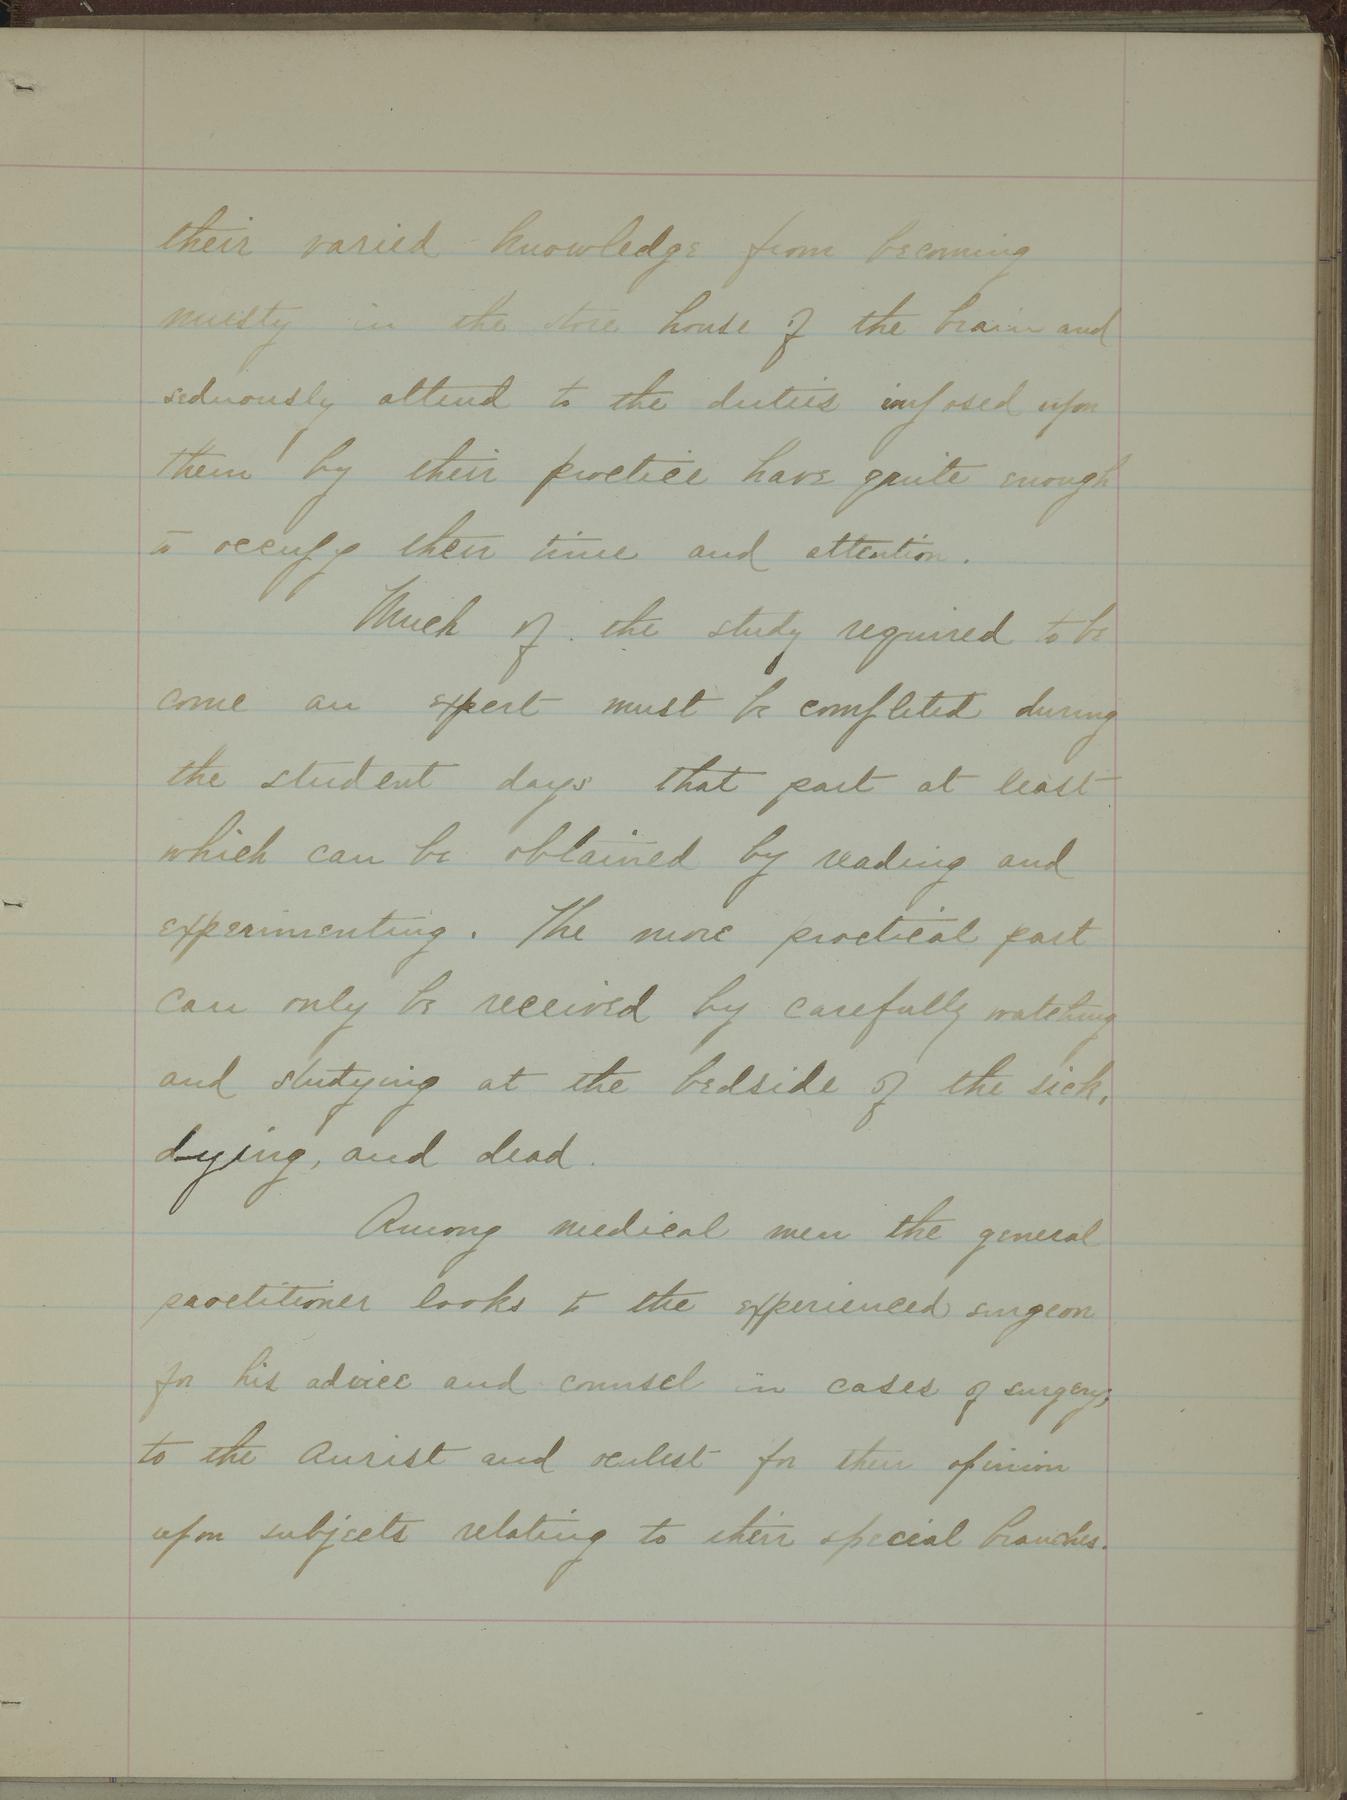 their varied knowledge from becoming
musty in the store house of the brain and
seduously attend to the duties imposed upon
them by their practice have quite enough
to occupy their time and attention.
Much of the study required to be
come an expert must be completed during
the student days that part at least
which can be obtained by reading and
experimenting. The more practical part
can only be received by carefully watching
and studying at the bedside of the sick,
dying, and dead.
Among medical men the general
practitioner looks to the experienced surgeon
for his advice and counsel in cases of surgery;
to the Aurist and oculist for their opinion
upon subjects relating to their special branches.